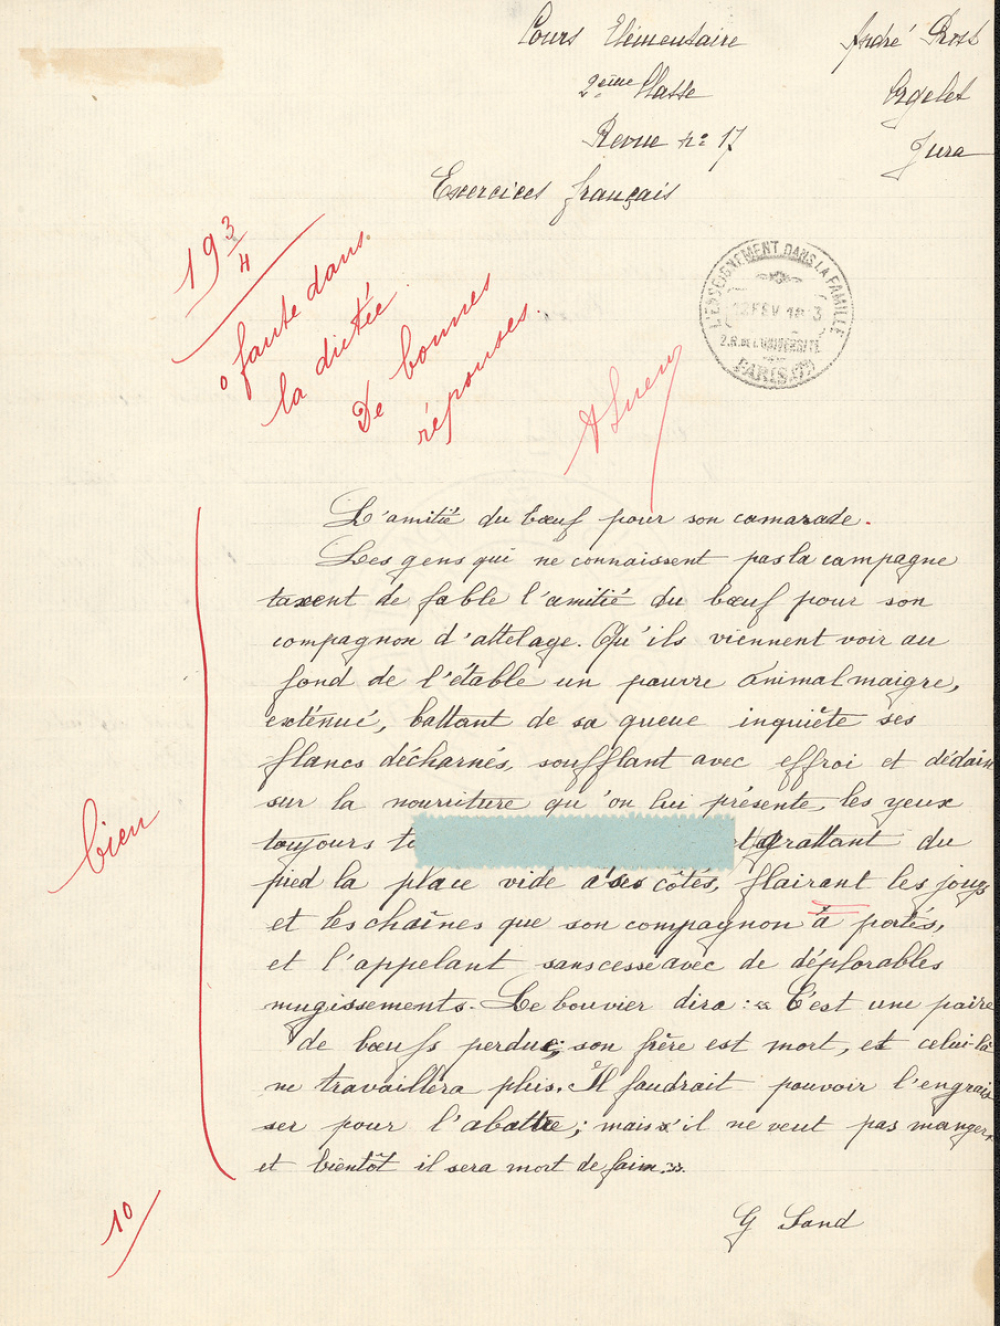 Cours Elémentaire
André Prost
2ème Classe
Orgelet
Revue nº 17
Jura
Exercices français
19 3/4
0 faute dans
la dictée
De bonnes
réponses.
L'ENSEIGNEMENT DANS LA FAMILLE
FEV
2.R. DE L'UNIVERSITÉ
PARIS
L'amitié du bœuf pour son camarade.
Les gens qui ne connaissent pas la campagne
taxent de fable l'amitié du bœuf pour son
compagnon d'attelage. Qu'ils viennent voir au
fond de l'étable un pauvre animal maigre,
exténué, battant de sa queue inquiète ses
flancs décharnés, soufflant avec effroi et dédain
sur la nourriture qu'on lui présente, les yeux
toujours grattant du
pied la place vide à ses côtés, flairant les jougs
et les chaînes que son compagnon à portés,
et l'appelant sans cesse avec de déplorables
mugissements. Le bouvier dira : « C'est une paire
de bœufs perdue; son frère est mort, et celui-là
ne travaillera plus. Il faudrait pouvoir l'engrais
ser pour l'abattre; mais il ne veut pas manger,
et bientôt il sera mort de faim. »
G Sand
bien
10